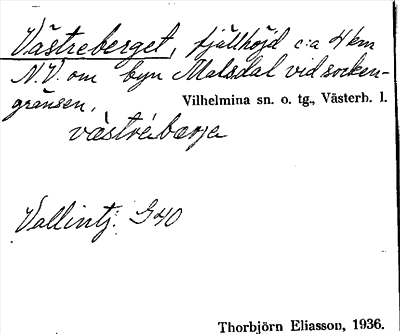 Västreberget, fjällhöjd c:a 4 km
N.V. om byn Malsdal vid socken-
gränsen, Vilhelmina sn. o. tg., Västerb. l.
västrebærje
Vallintj. G40
Thorbjörn Eliasson, 1936.